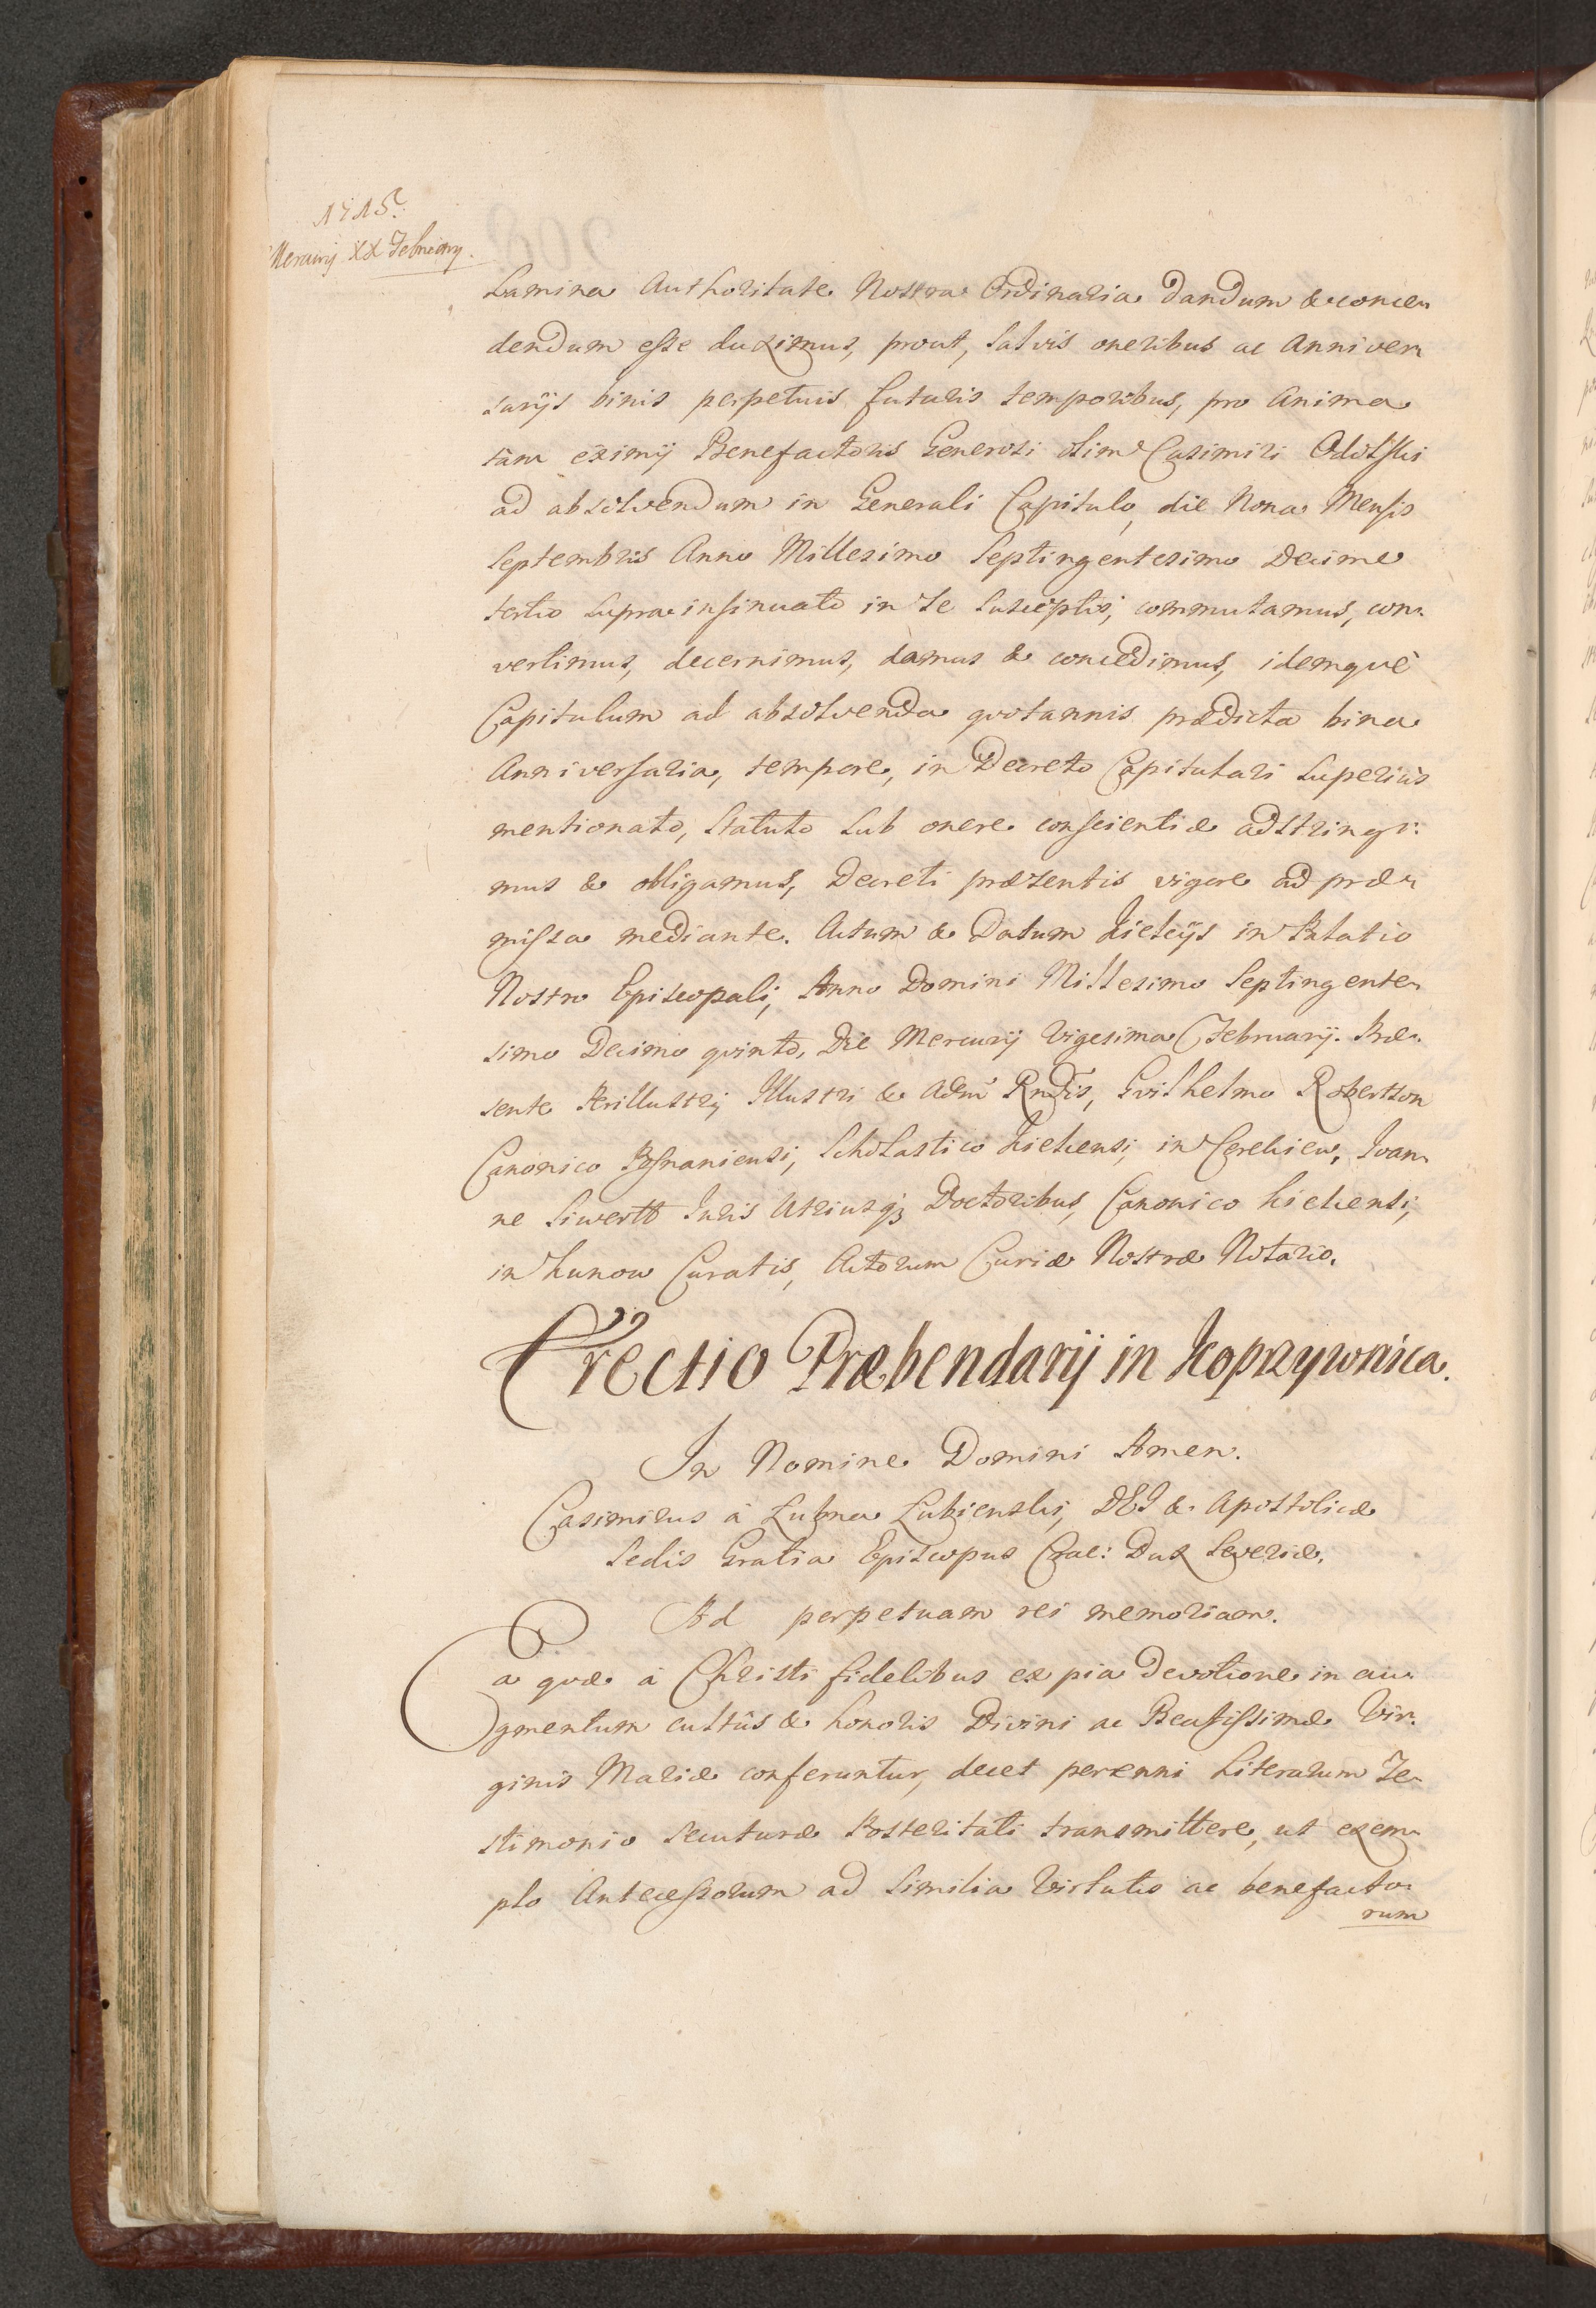 1715.
Mercurij XX Februarij.
Lamina Authoritate Nostra Ordinaria dandum & conce-
dendum esse duximus, prout, salvis oneribus ac Anniver-
sarijs binis perpetuis futuris temporibus, pro Anima
tàm eximij Benefactoris Generosi olim Casimiri
ad absolvendum in Generali Capitulo, die Nona Mensis
Septembris Anno Millesimo Septingentesimo Decimo
tertio supra insinuato in se susceptis, commutamus, con-
vertimus, decernimus, damus & concedimus, idemquè
Capitulum ad absolvenda quotannis prædicta bina
Anniversaria, tempore, in Decreto Capitulari superiùs
mentionato, statuto sub onere conscientiæ adstringi-
mus & obligamus, Decreti præsentis vigore ad præ-
missa mediante. Actum & Datum Kielcijs in Palatio
Nostro Episcopali, Anno Domini Millesimo Septingente-
simo Decimo quinto, Die Mercurij Vigesima Februarij. Præ-
sente Perillustri, Illustri & Adm Rndis, Gvilhelmo Robertson
Canonico Posnaniensi, Scholastico Kielcensi, in Cerekiew, Ioan-
ne Siwertt Iuris Utriusq; Doctoribus, Canonico Kielcensi,
in Kunow Curatis, Actorum Curiæ Nostræ Notario.
Erectio Præbendarij in Koprzywnica.
In Nomine Domini Amen.
Casimirus à Lubna Lubienski, DEI & Apostolicæ
Sedis Gratia Episcopus Crac: Dux Severiæ,
Ad perpetuam rei memoriam.
Ea quæ à Christi fidelibus ex pia devotione in au-
gmentum cultûs & honoris Divini ac Beatissimæ Vir-
ginis Mariæ conferuntur, decet perenni Literarum Te-
stimonio secuturæ Posteritati transmittere, ut exem-
plo Antecessorum ad similia Virtutis ac benefacto-
rum